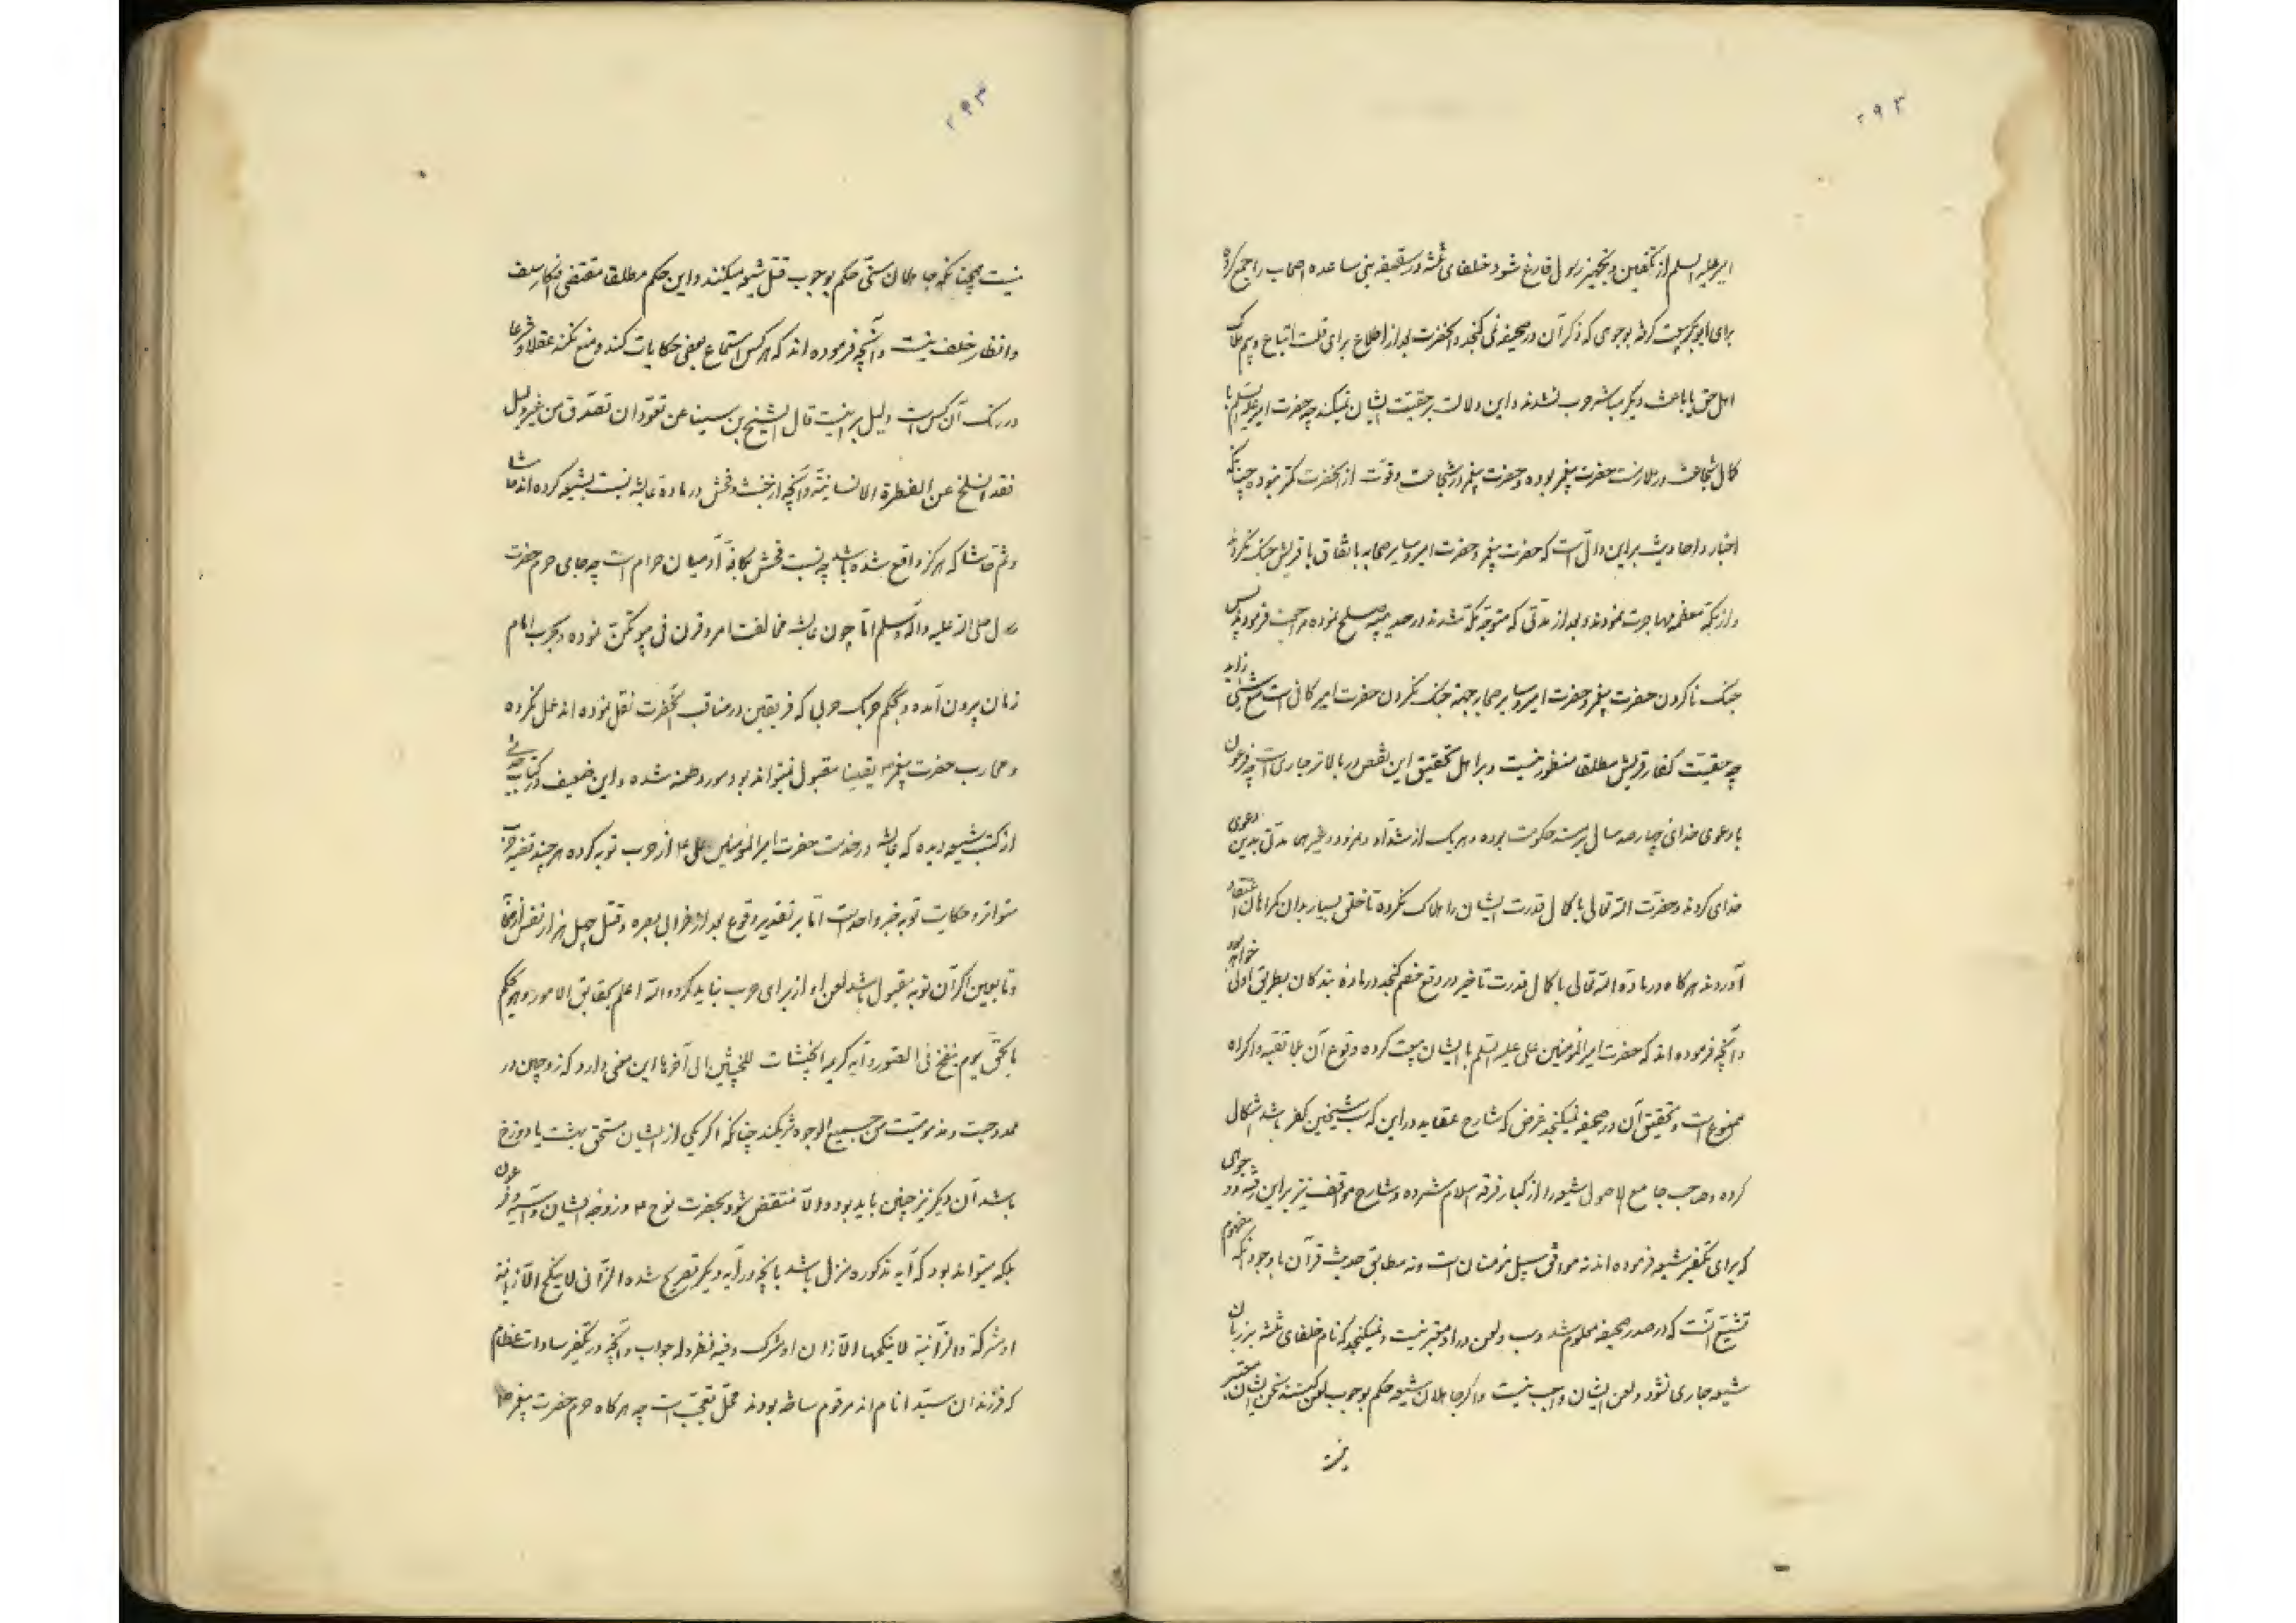 ۲۹۳
امیر علیه السلم از تکفین و تجهیز رسول فارغ شود خلفای ثلثه در سقیفه بنی ساعده اصحاب را جمع کرده
برای ابوبکر بیعت گرفته بوجوهی که ذکر آن در صحیفه نمی کنجد و آنحضرت بعد از اطلاع برای قلت اتباع و بیم هلاک
اهل حق یا باعث دیگر مباشر حرب نشدند و این دلالت بر حقیت ایشان نمیکند چه حضرت امیر علیه السلم با
کمال شجاعت در ملازمت حضرت پیغمبر بوده و حضرت پیغمبر در شجاعت و قوت از آنحضرت کمتر نبوده چنانکه
اخبار و احادیث براین دالّ است که حضرت پیغمبر و حضرت امیر و سایر صحابه باتفاق با قریش جنک نکردند
و از مکّه معظمه مهاجرت نمودند و بعد از مدّتی که متوجّه مکّه شدند در حدیبیه صلح نموده مراجعت فرمودند پس
جنک ناکردن حضرت پیغمبر و حضرت امیر و سایر صحابه جهته جنک نکردن حضرت امیر کافی است مع شیئ زاید
چه حقیّت کفار قریش مطلقا منظور نیست و برا هل تحقیق این نقض در بالاتر جاری است چه فرعون
با دعوی خدائی چهارصد سال بر مسند حکومت بوده و هریک از شدّاد و نمرود و غیر هما مدتی بدین دعوی
خدای کردند و حضرت الله تعالی با کمال قدرت ایشان را هلاک نکرده تا خلقی بسیار بدان کمراهان اعتقاد
آوردند هر کاه در مادّه الله تعالی با کمال قدرت تاخیر در دفع خصم کنجد در مادّه بندکان بطریق اولی خواهد بود
و آنچه فرموده اند که حضرت امیر المومنین علی علیه السّلم با ایشان بیعت کرده وقوع آن بلا تقیه و اکراه
ممنوع است و تحقیق آن در صحیفه نمیکنجد غرض که شارح عقاید در این که سبّ شیخین کفر باشد اشکال
کرده و صاحب جامع الاصول شیعه را از کبار فرقه اسلام شمرده و شارح مواقف نیز براین رفته وجوهی
که برای تکفیر شیعه فرموده اند نه موافق سبیل مؤمنان است و نه مطابق حدیث قرآن باوجود آنکه مفهوم
تشیّع آنست که در صدر صحیفه معلوم شد و سب و لعن در او معتبر نیست و نمیکنجد که نام خلفای ثلثه بر زبان
شیعه جاری نشود و لعن ایشان واجب نیست و اکر جاهلان شیعه حکم بوجوب لعن کنند سخن ایشان معتبر
نیست
۲۹۳
نیست همچنانکه جاهلان سنّی حکم بوجوب قتل شیعه میکنند و این حکم مطلقا مقتضی افکار سلف
و انظار خلف نیست و آنچه فرموده اند که هر کس استماع بعضی حکایات کند و منع نکند عقلا و شرعا
درنک آن کس است دلیل بر نیست قال الشیخ بن سینا عن تعوّد ان تصدّق من غیر دلیل
فقد انسلخ عن الفطرة الانسانیّة و آنچه از خبث و فحش در مادّه عایشه نسبت بشیعه کرده اند حاشا
و ثم حاشا که هرکز واقع شده باشد چه نسبت فحش بکافّه آدمیان حرام است چه جای حرم حضرت
رسول صلی الله علیه و آله وسلم امّا چون عایشه مخالفت امر و قرن فی بیوتکنّ نموده و بحرب امام
زمان بیرون آمده و بحکم حربک حربی که فریقین در مناقب آنحضرت نقل نموده اند عمل نکرده
و محارب حضرت پیغمبر یقینا مقبول نمیتواند بود مورد طعنه شده و این ضعیف در کتاب حدیثی
از کتب شیعه دیده که عایشه در خدمت حضرت امیر المؤمنین علی از حرب توبه کرده هر چند قضیه حرب
متواتر و حکایت توبه خبر واحد است امّا بر تقدیر وقوع بعد از خرابی بصره و قتل چهل هزار نفس از صحابه
و تابعین اکر آن توبه مقبول باشد لعن او از برای حرب نباید کرد و الله اعلم بحقایق الامور و هو یحکم
بالحقّ یوم ینفخ فی الصّور و آیه کریمه الخبیثات للخبیثین الی آخرها این معنی دارد که زوجین در
ممدوحیت و مذمومیّت من جمیع الوجوه شریکند چنانکه اکر یکی از ایشان مستحق بهشت یا دوزخ
باشد آن دیکر نیز چنین باید بود و الّا منتقض شود بحضرت نوح و زوجه ایشان و آسیه و فرعون
بلکه میتواند بود که آیه مذکوره منزل باشد بانچه در آیه دیکر تصریح شده الزّانی لا ینکح الّا زانیة
او مشرکة و الزّانیة لا ینکحها الّا زان او مشرک و فیه نظر و له جواب و آنچه در تکفیر سادات عظام
که فرزندان سیّد انام اند مرقوم ساخته بودند محلّ تعجّب است چه هرکاه حرم حضرت پیغمبر